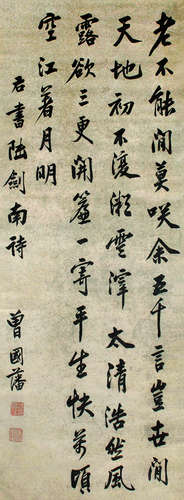 老不能閒莫咲余五千言豈世間
天地初不復微雲滓太清浩然風
露欲三更開簾一寄平生快萬頃
空江著月明
書陸劍南詩
曾國藩